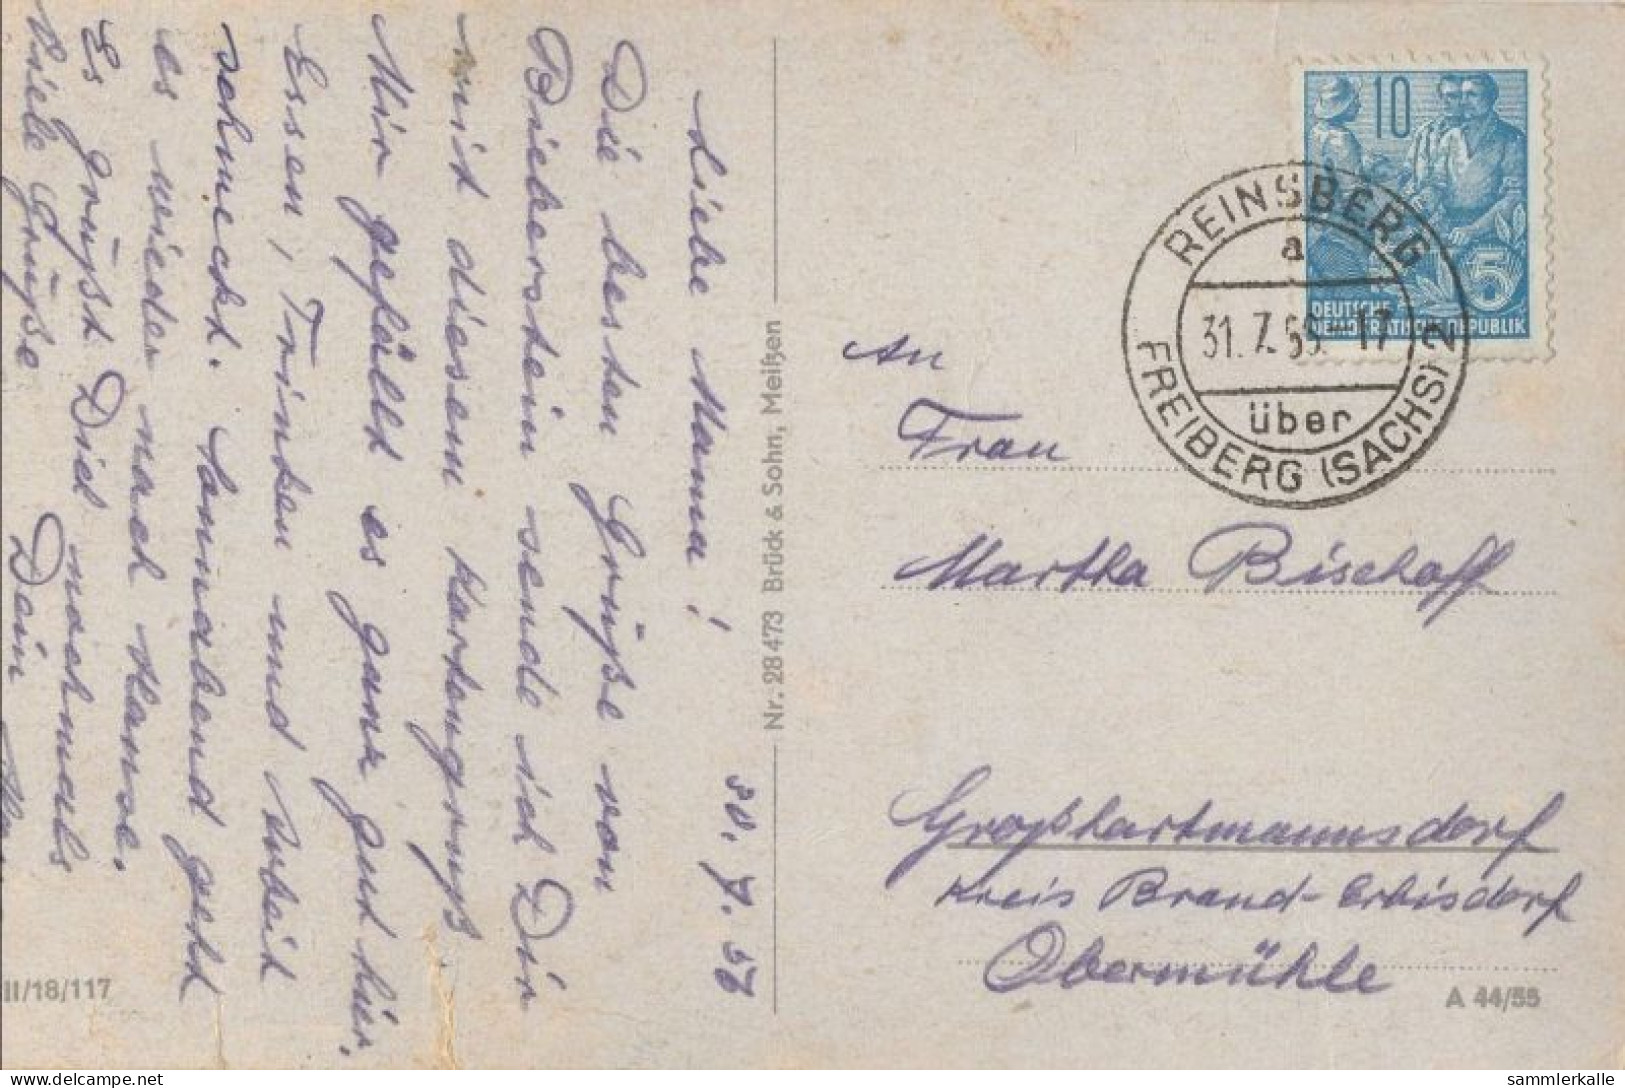 30. 7. 56
Liebe Mama!
Die besten Grüße von
Bieberstein sende ich Dir
mit diesem Kartengruß
Mir gefällt es ganz gut hier.
Essen, Trinken und Arbeit
schmeckt. Sonnabend geht
es wieder nach Hause.
Es grüßt Dich nochmals
Viele Grüße Dein
Nr. 28473 Brück & Sohn, Meißen
II/18/117
10
5
DEUTSCHE
DEMOKRATISCHE REPUBLIK
REINSBERG
a
31. 7. 17
über
FREIBERG (SACHS) 2
An
Frau
Martha Bischoff
Großhartmannsdorf
Kreis Brand-Erbisdorf
Obermühle
A 44/55
delcampe.net
sammlerkalle